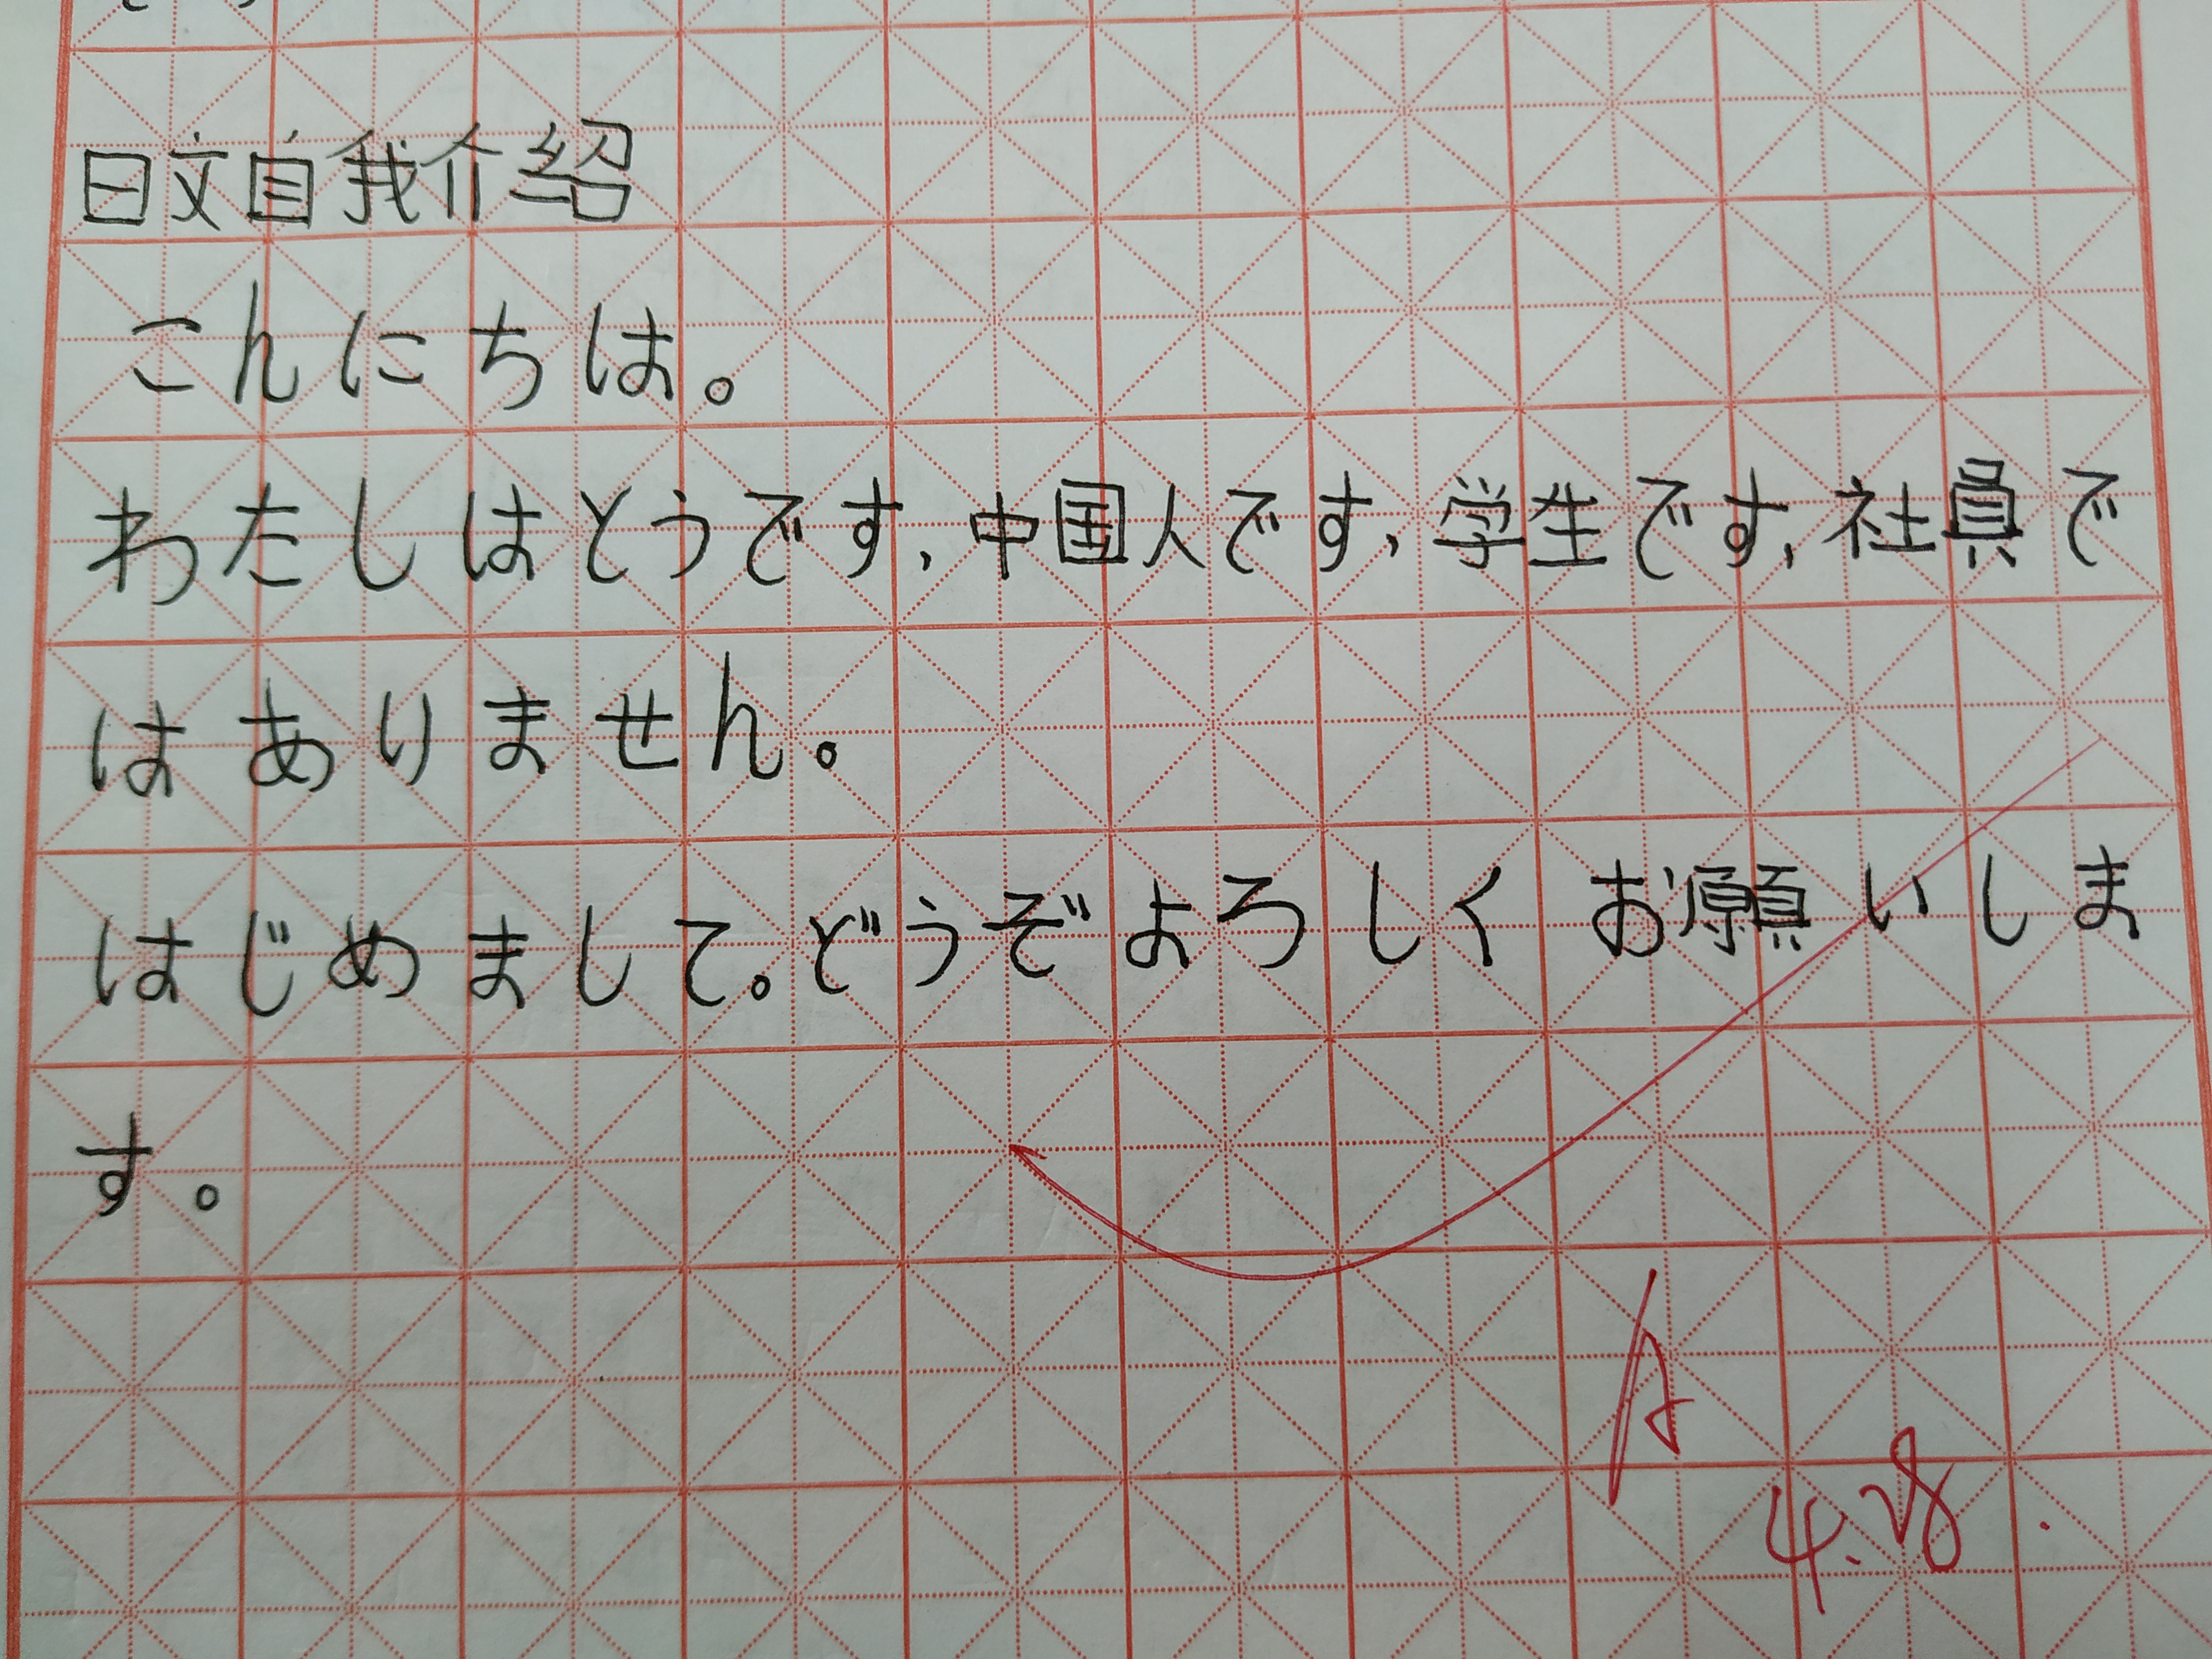 日文自我介绍
こんにちは。
わたしはとうです、中国人です、学生です、社員で
はありません。
はじめまして。どうぞよろしくお願いしま
す。
A
4.28.